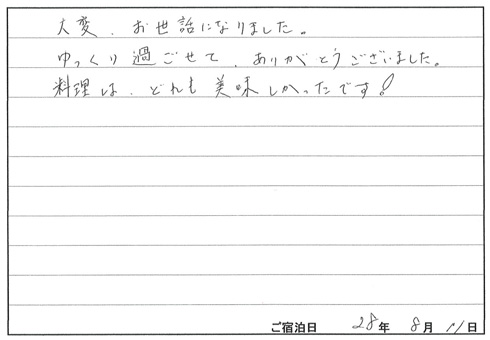 大変、お世話になりました。
ゆっくり過ごせて、ありがとうございました。
料理は、どれも美味しかったです!
ご宿泊日 28年 8月 11日